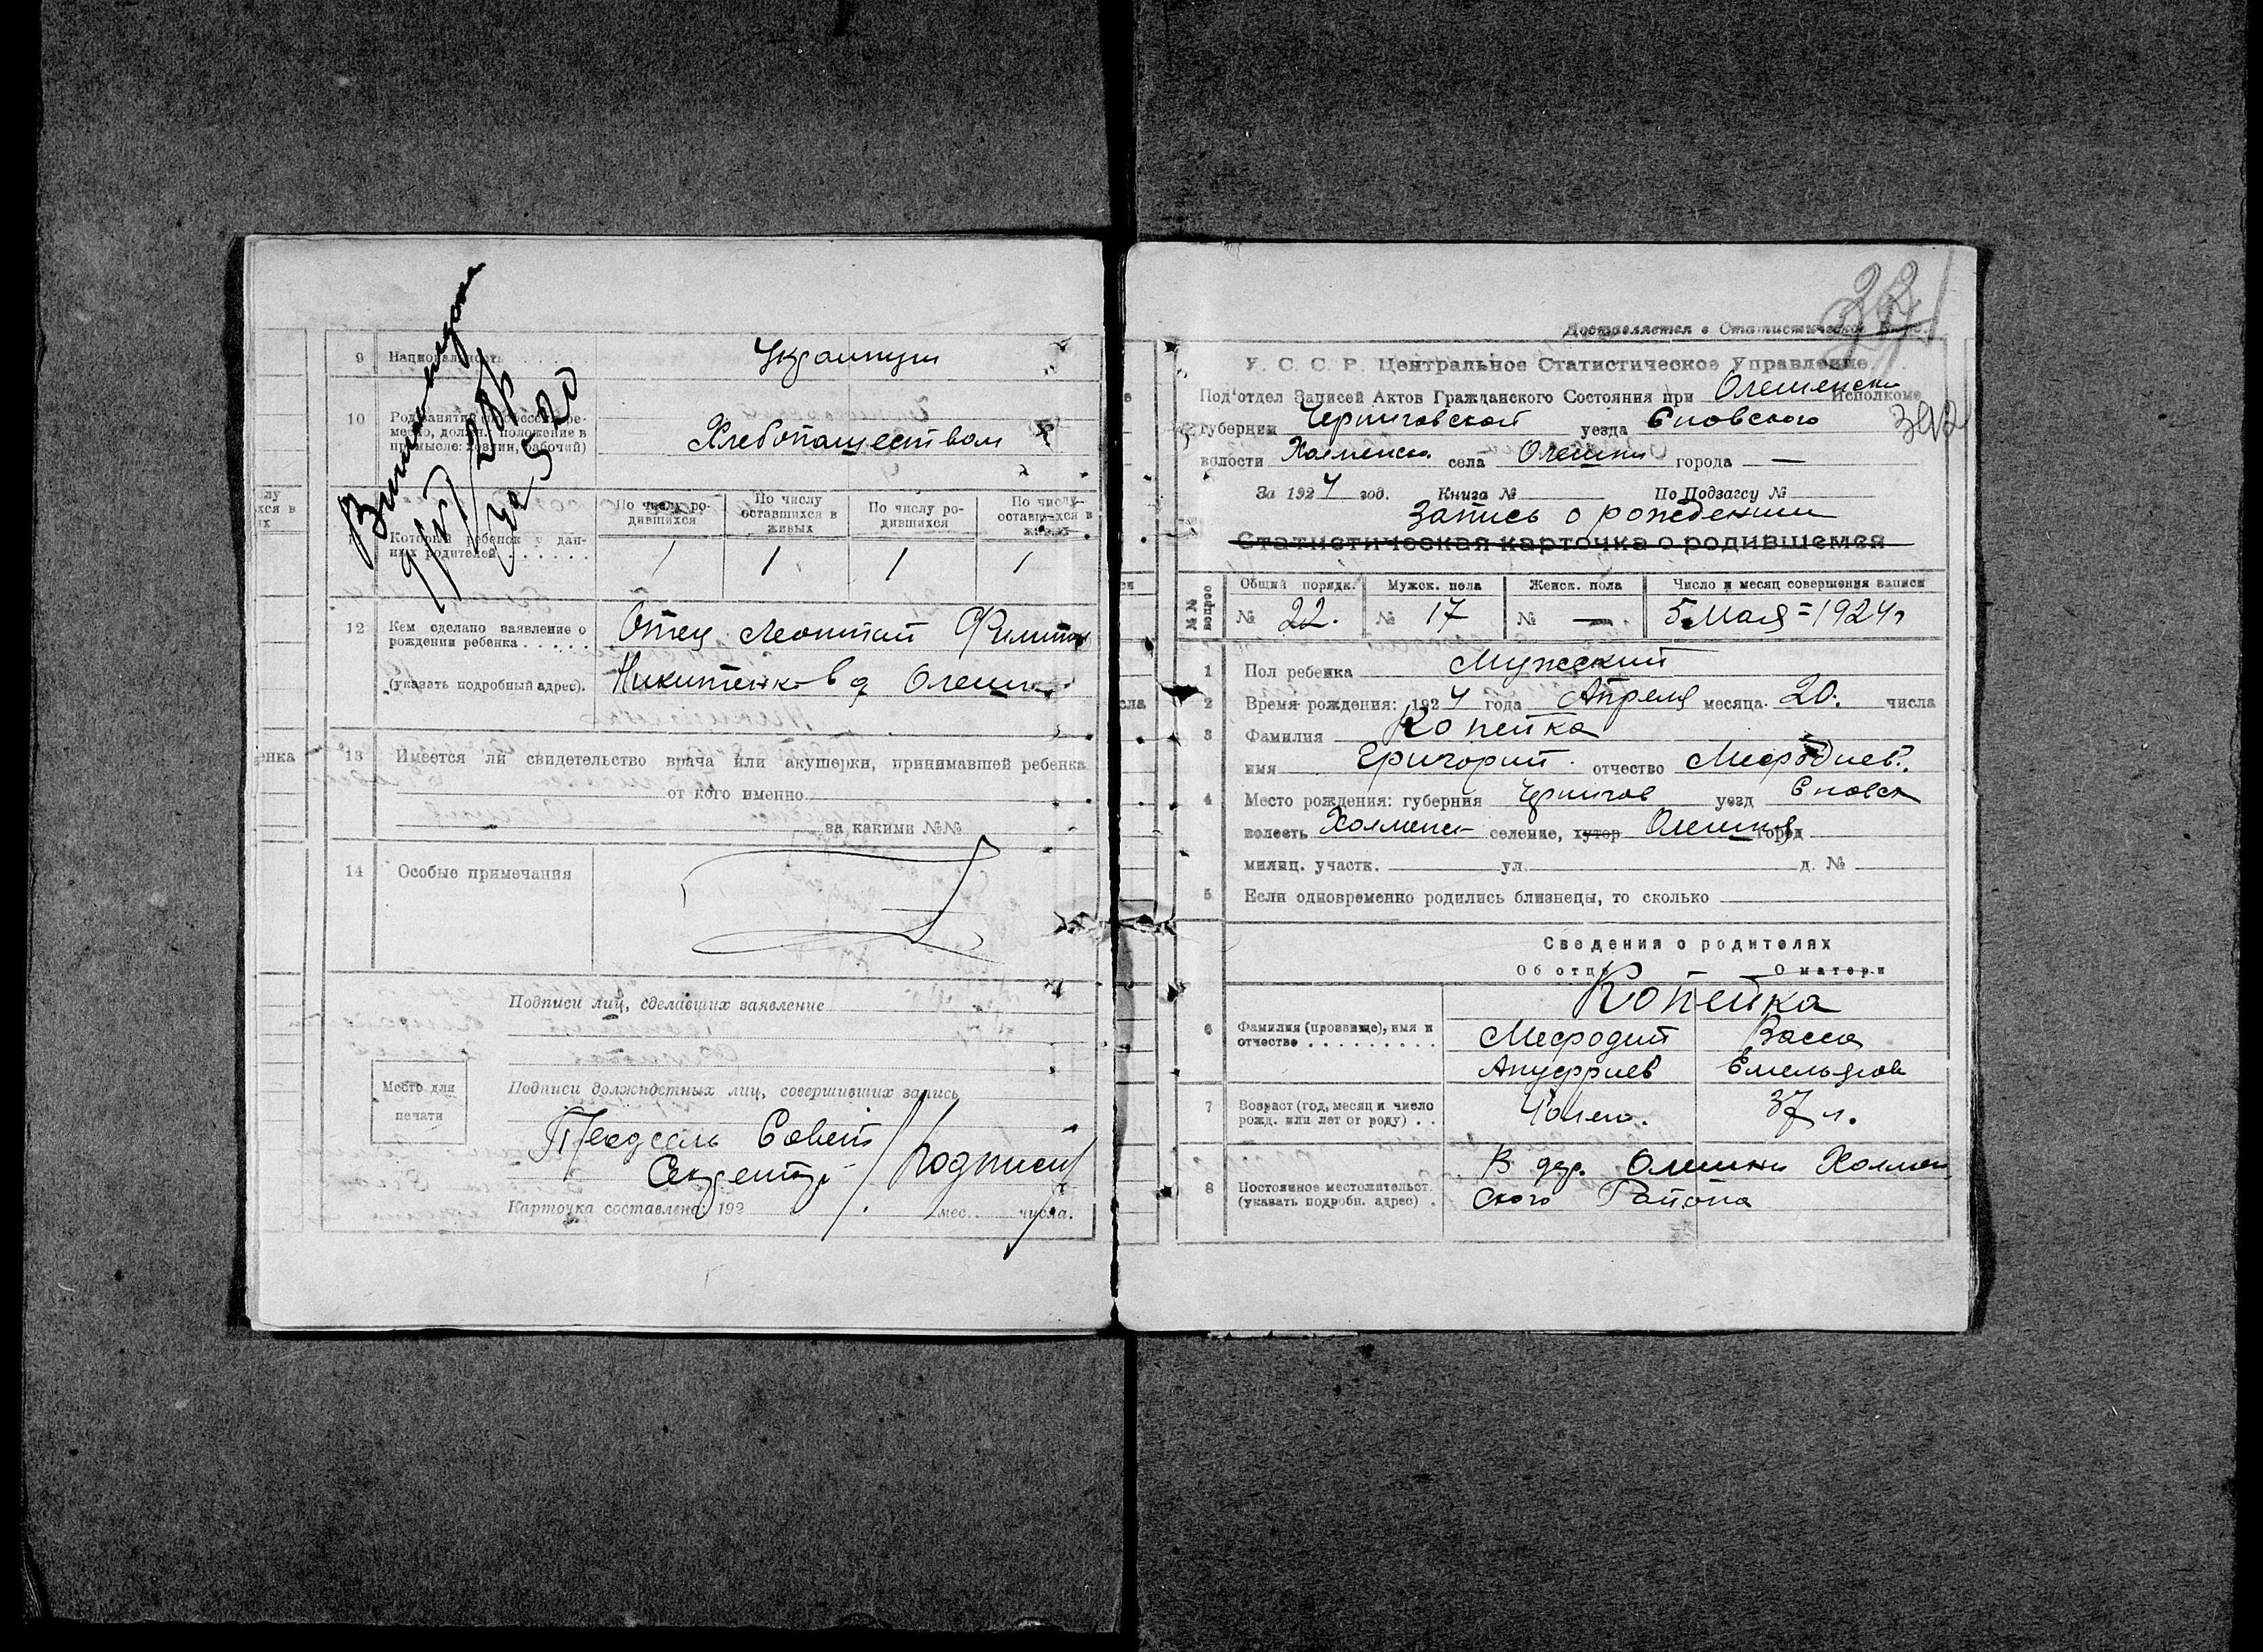 9 Национальность Украинцы
10 Род занятий (профессия, ремесло, должн. положение в промысле: хозяин, рабочий)
Хлебопашеством
По числу родившихся По числу оставшихся в живых По числу родившихся По числу оставшихся в живых
Который ребенок у данных родителей 1 1 1 1
12 Кем сделано заявление о рождении ребенка Отец Леонтий Филипов
(указать подробный адрес). Никитенко в д Олешня
13 Имеется ли свидетельство врача или акушерки, принимавшей ребенка
от кого именно
за какими №№
14 Особые примечания
Подписи лиц, сделавших заявление
Место для печати
Подписи должностных лиц, совершивших запись
Предсель Совета
Секретарь Подписи
Карточка составлена: 192 мес. числа.
Доставляется в Статистическое Бюро.
У. С. С. Р. Центральное Статистическое Управление.
Под'отдел Записей Актов Гражданского Состояния при Олешенски Исполкоме
губернии Черниговской уезда Сновского
волости Холменск села Олешни города —
За 1924 год. Книга № По Подзагсу №
Запись о рождении
Статистическая карточка о родившемся
№№ вопрос Общий порядк. Мужск. пола Женск. пола Число и месяц совершения записи
№ 22. № 17 № — 5 Мая = 1924 г
1 Пол ребенка Мужеский
2 Время рождения: 1924 года Апреля месяца 20. числа
3 Фамилия Копейка
имя Григорий отчество Мефодиев.
4 Место рождения: губерния Чернигов уезд Сновск
волость Холменск селение, хутор Олешня город
милиц. участк. ул. д. №
5 Если одновременно родились близнецы, то сколько
Сведения о родителях
Об отце О матери
Копейка
6 Фамилия (прозвище), имя и отчество Мефодий Васса
Ануфриев Емельянов
7 Возраст (год, месяц и число рожд. или лет от роду) 37 л.
8 Постоянное местожительст. (указать подробн. адрес) В дер. Олешни Холмен
ского Района